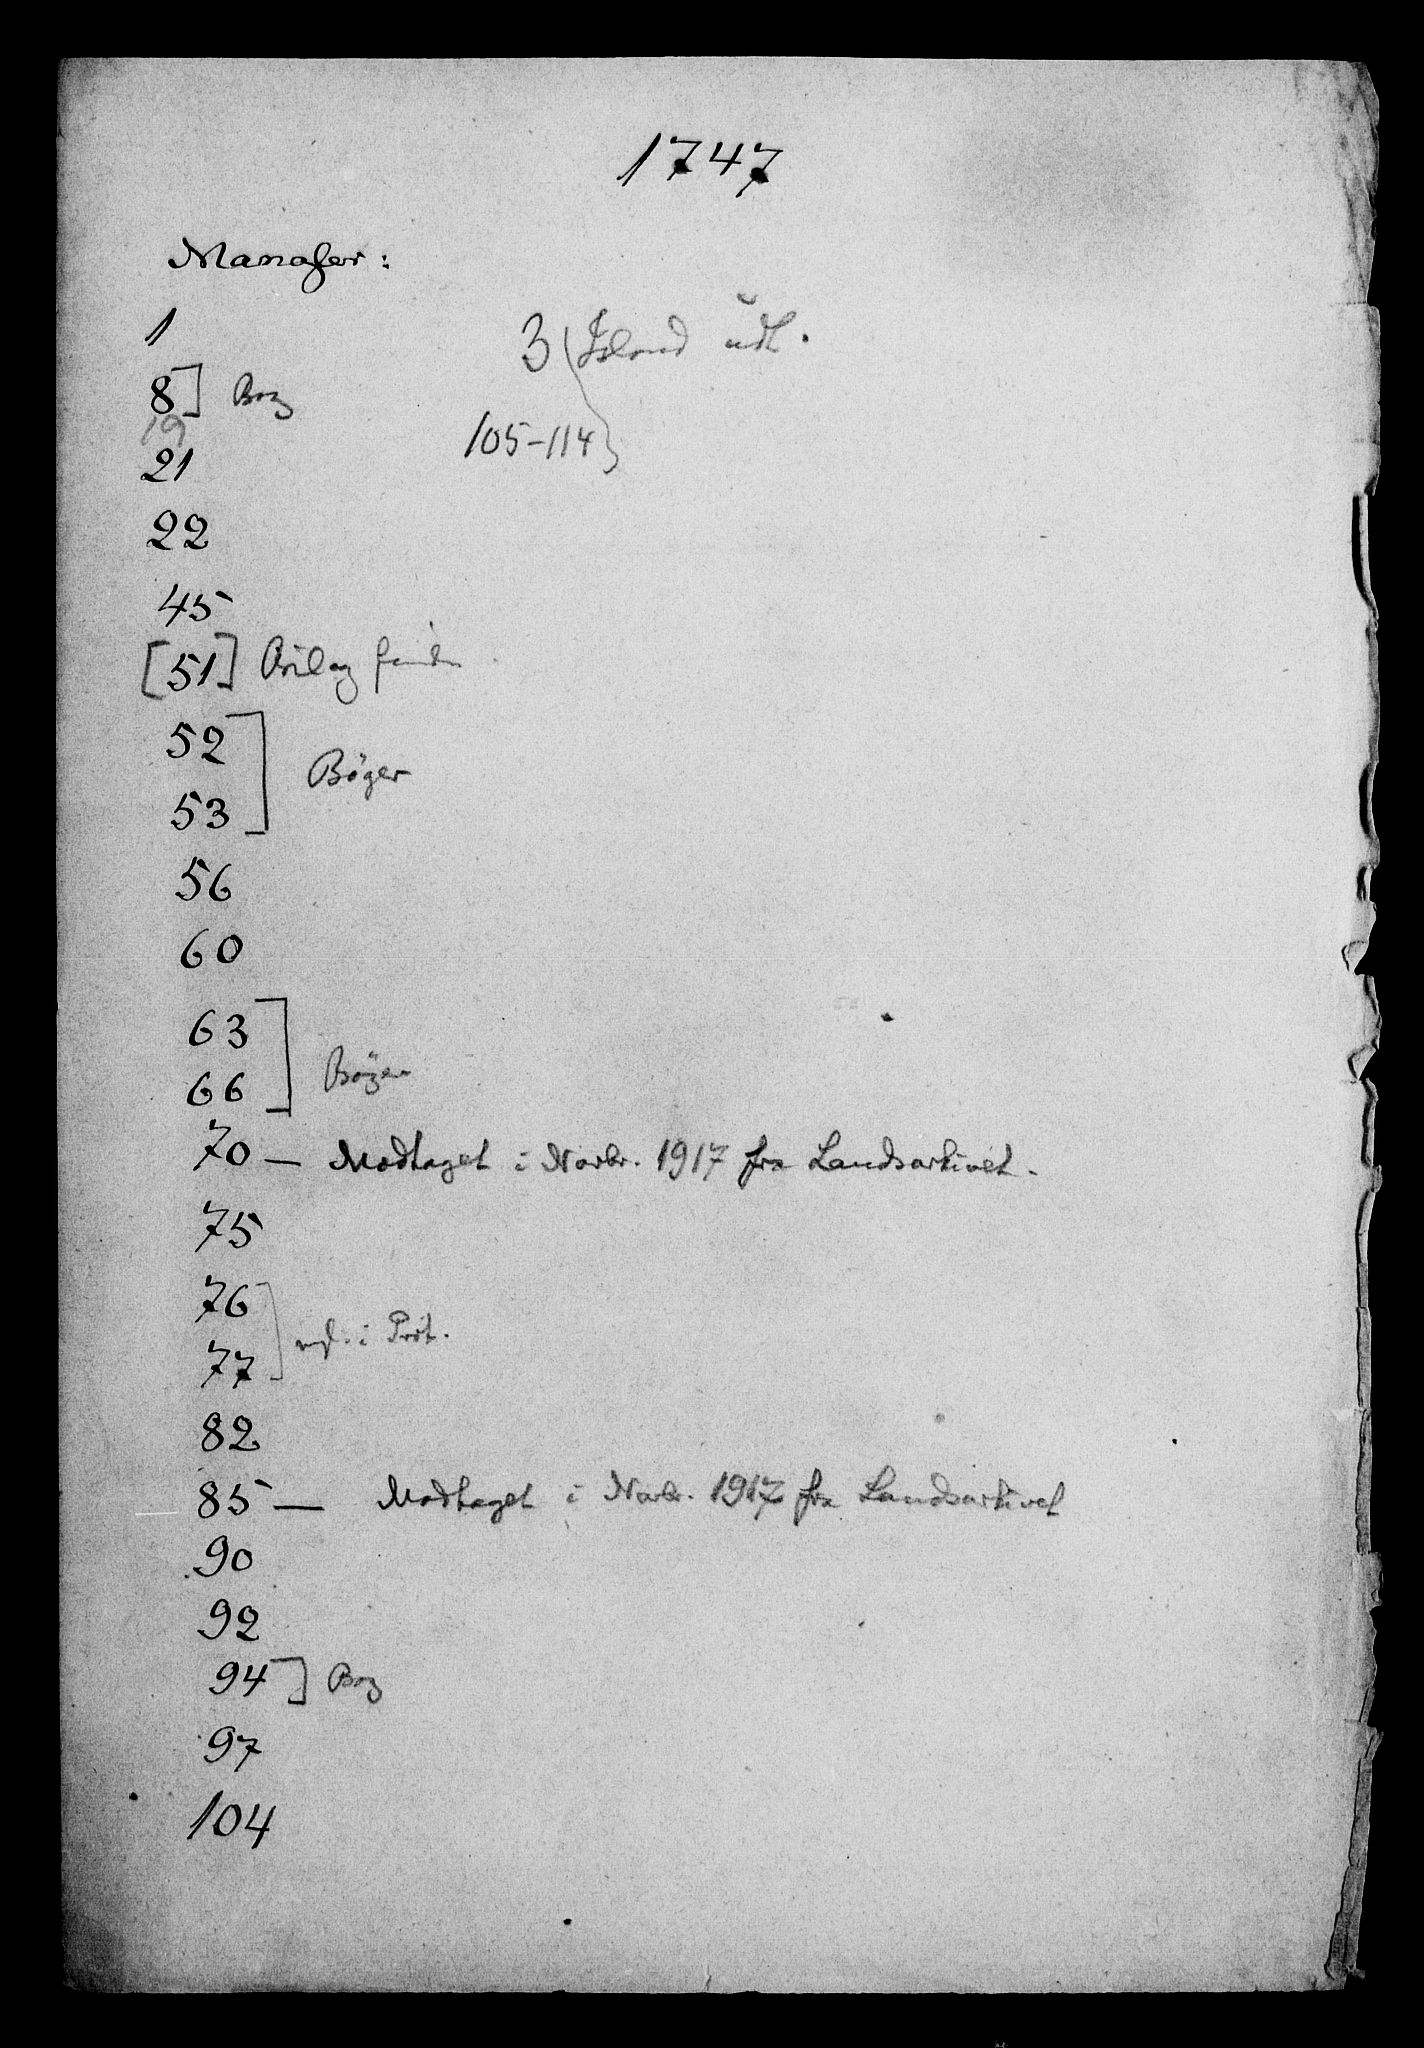 1747
Mangler:
1
3 Island udt.
8] Bog
19
105-114
21
22
45
[51] Bilag
52
Bøger
53
56
60
63
Bøger
66
70 — Modtaget i Novbr. 1917 fra Landsarkivet.
75
76
i Prot.
77
82
85 — Modtaget i Novbr. 1917 fra Landsarkivet
90
92
94] Bog
97
104